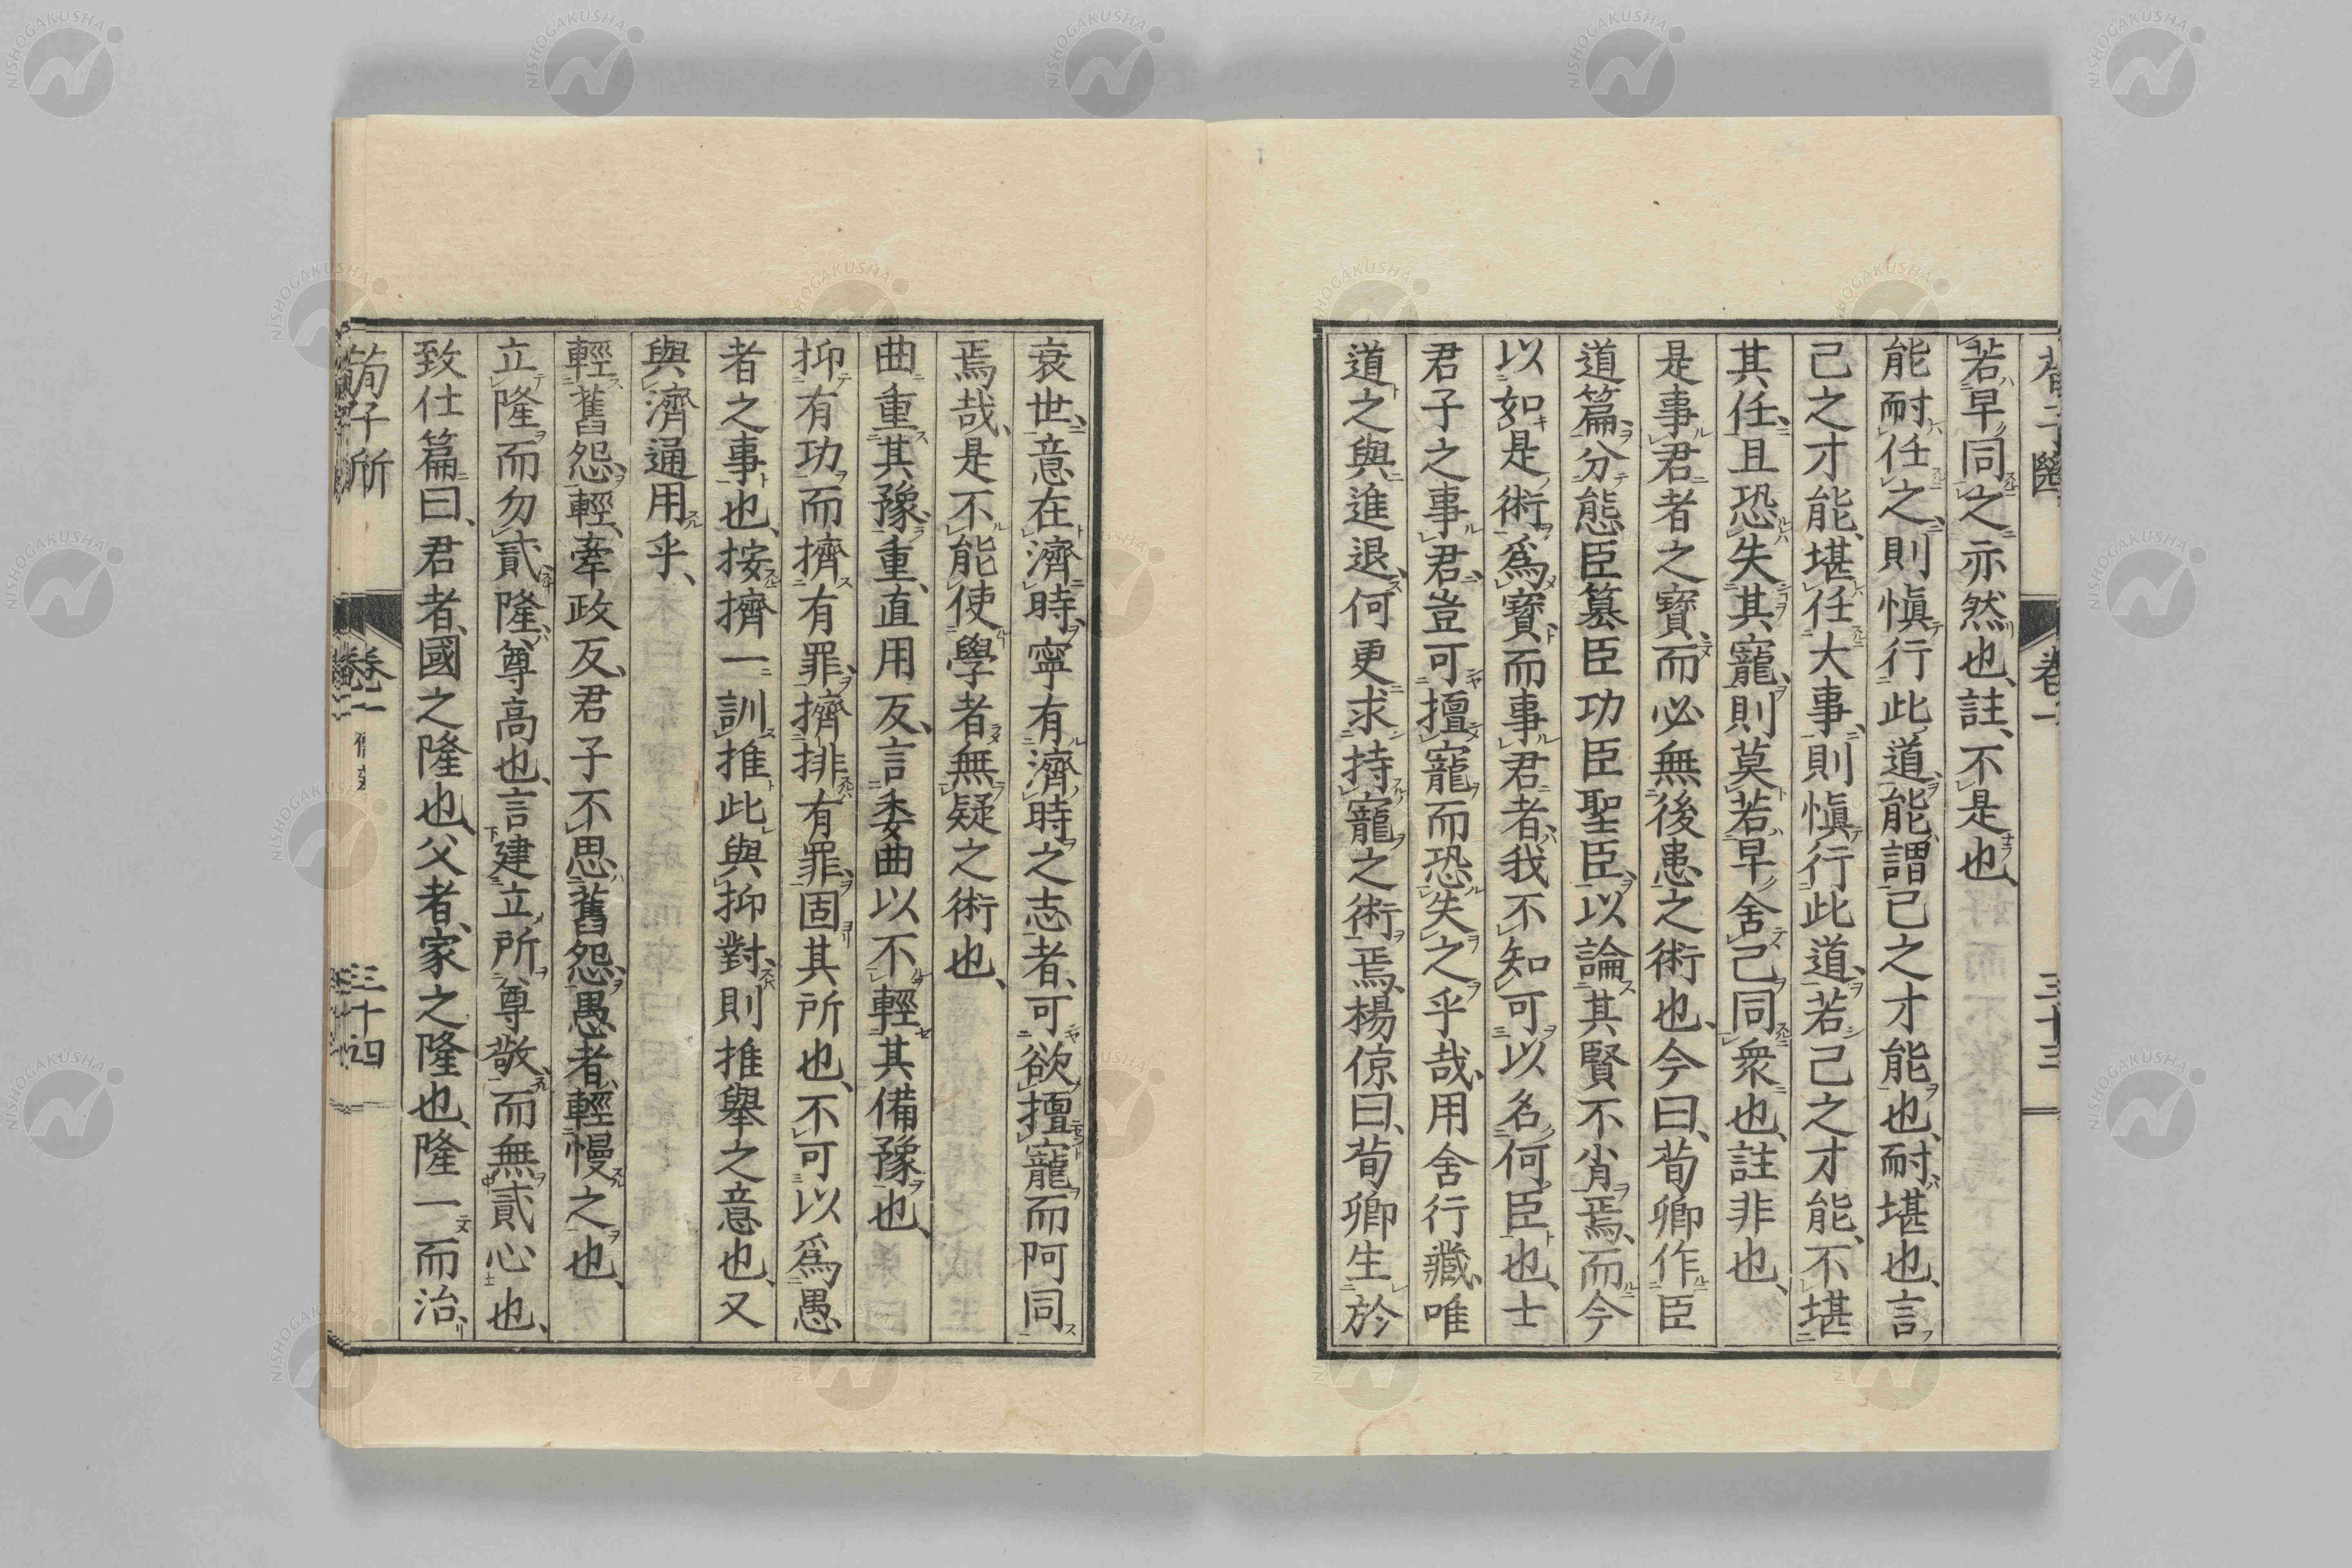 若早同之亦然也、註、不是也、
能耐任之、則愼行此道、能、謂己之才能也、耐、堪也、言
己之才能、堪任大事、則愼行此道、若己之才能、不堪
其任、且恐失其寵、則莫若早舍己同衆也、註非也、
是事君者之寶、而必無後患之術也、今曰、荀卿作臣
道篇、分態臣篡臣功臣聖臣、以論其賢不肖焉、而今
以如是術爲寶、而事君者、我不知可以名何臣也、士
君子之事君、豈可擅寵而恐失之乎哉、用舍行藏、唯
道之與進退、何更求持寵之術焉、楊倞曰、荀卿生於
衰世、意在濟時、寧有濟時之志者、可欲擅寵而阿同
焉哉、是不能使學者無疑之術也、
曲重其豫、重、直用反、言委曲以不輕其備豫也、
抑有功而擠有罪、擠排有罪、固其所也、不可以爲愚
者之事也、按擠一訓推、此與抑對、則推舉之意也、又
與濟通用乎、
輕舊怨、輕、牽政反、君子不思舊怨、愚者輕慢之也、
立隆而勿貳、隆、尊高也、言建立所尊敬、而無貳心也、
致仕篇曰、君者、國之隆也、父者、家之隆也、隆一而治、
卷一
三十四